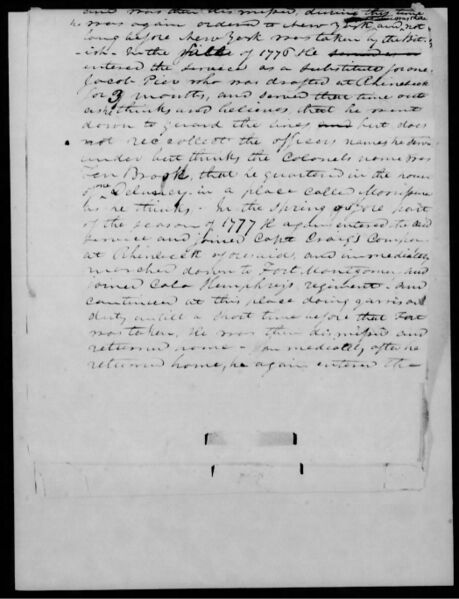 and was then dismissed, during this time
he was again ordered to New York and not
long before New York was taken by the Brit-
ish. In the fall of 1776 he
entered the service as a substitute for one
Jacob Pier who was drafted at Rhinebeck
for 3 months, and served that time out
as he thinks and believes that he went
down to guard the lines and but does
not reccollect the officers names he served
under but thinks the Colonels name was
Ten Brook, that he quartered in the house
of one Delancy in a place called Morrisena
he thinks - In the spring or fore part
of the season of 1777 he again entered the said
service and joined Capt Craig's Company
at Rhinebeck aforesaid, and immediately
marched down to Fort Montgomery and
joined Colo Humphrey's regiment and
continued at this place doing garrison
duty, untill a short time before that Fort
was taken, he was then dismissed and
returned home - Immediately after he
returned home, he again entered the